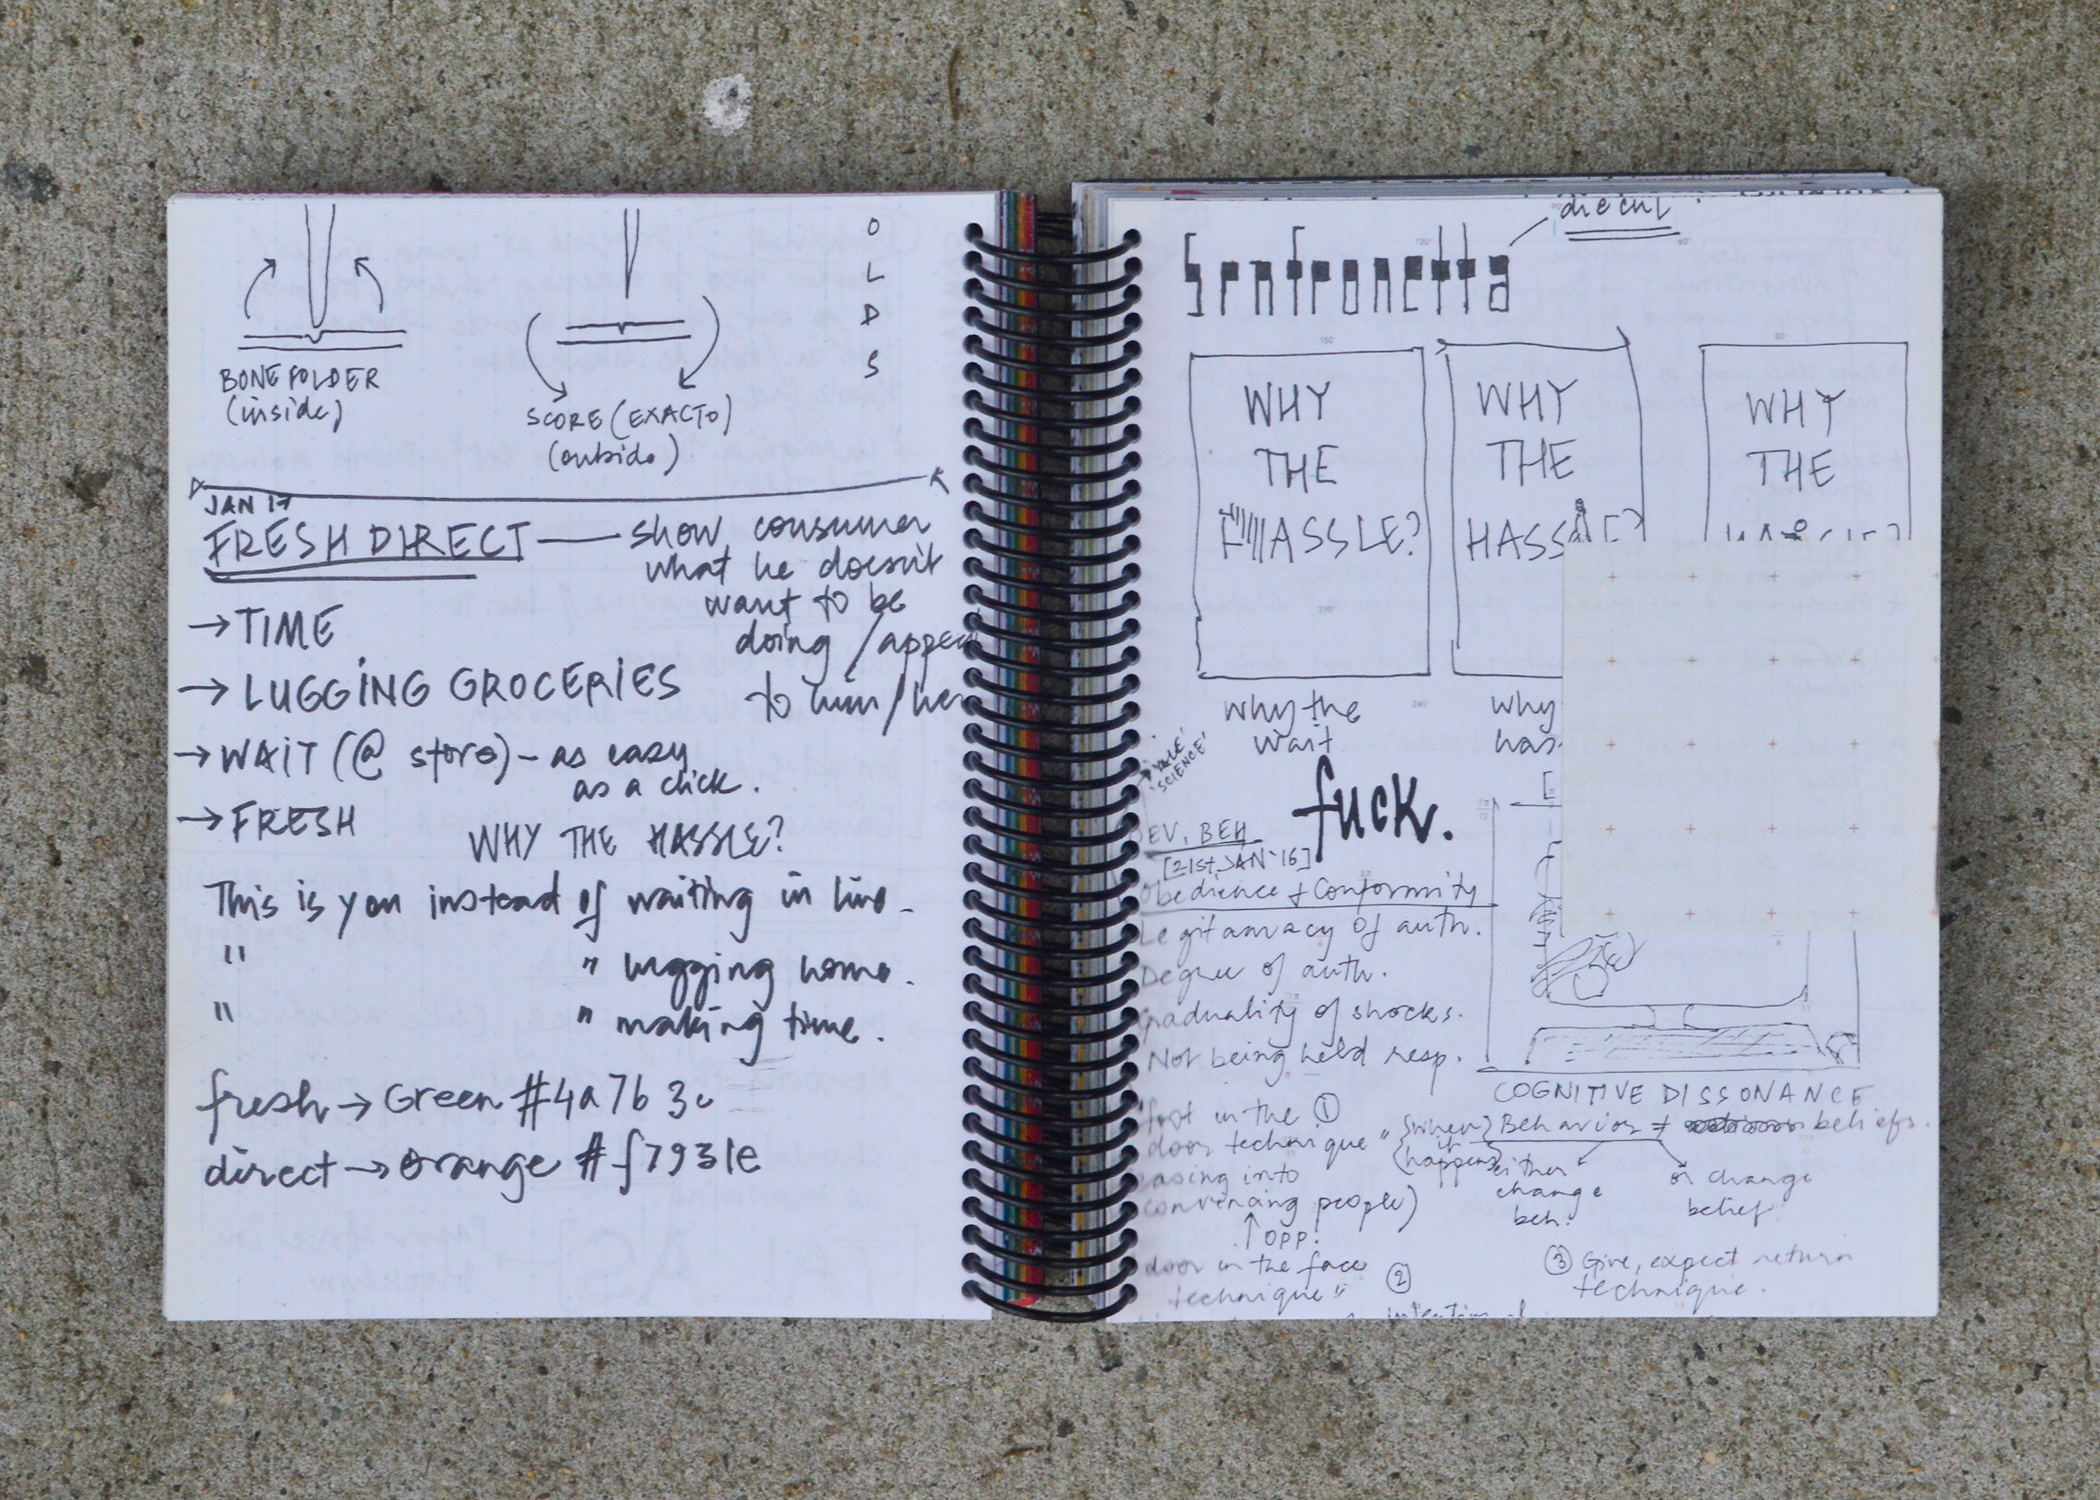 O
L
D
S
BONE FOLDER
(inside)
SCORE (EXACTO)
(outside)
JAN 17
FRESH DIRECT — show consumer
what he doesn't
want to be
doing / appea
to him/her
→ TIME
→ LUGGING GROCERIES
→ WAIT (@ store) - as easy
as a click.
→ FRESH
WHY THE HASSLE?
This is you instead of waiting in line.
" " lugging home.
" " making time.
fresh → Green #4a7b3c
direct → orange #f7931e
diecut
WHY
THE
HASSLE?
WHY
THE
HASSLE?
WHY
THE
why the
wait
why
has
'MILE'
SCIENCE'
fuck.
DEV. BEH
[21st JAN '16]
Obedience + Conformity
Legitamacy of auth.
Degree of auth.
Graduality of shocks.
Not being held resp.
"foot in the ①
door technique"
easing into
convencing people)
↑ OPP.
door in the face
technique" ②
COGNITIVE DISSONANCE
{when it happens} Behavior ≠ beliefs.
either
change
beh.
or change
belief
③ Give, expect return
technique.